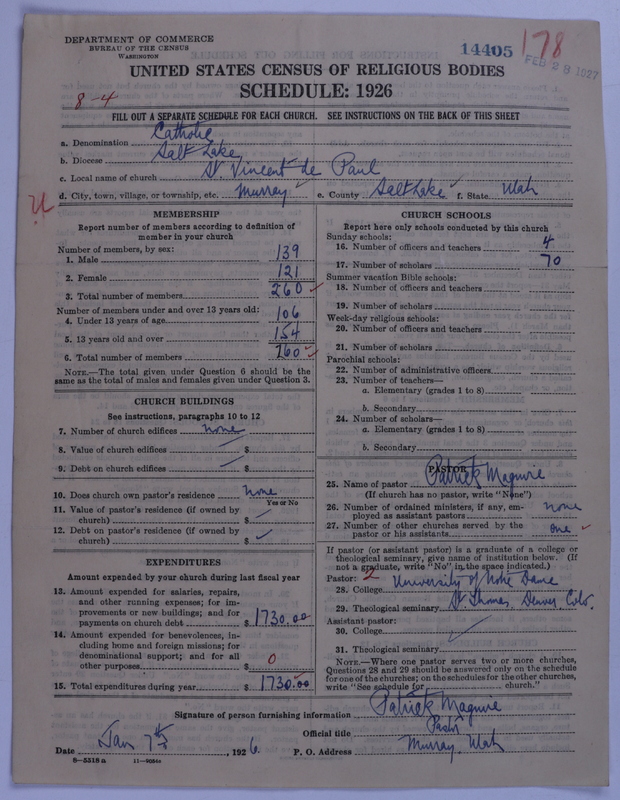 DEPARTMENT OF COMMERCE
BUREAU OF THE CENSUS
WASHINGTON
14405
178
FEB 28 1927
UNITED STATES CENSUS OF RELIGIOUS BODIES
SCHEDULE: 1926
8-4
FILL OUT A SEPARATE SCHEDULE FOR EACH CHURCH. SEE INSTRUCTIONS ON THE BACK OF THIS SHEET
a. Denomination Catholic
b. Diocese Salt Lake
c. Local name of church St Vincent de Paul
d. City, town, village, or township, etc. Murray e. County Salt Lake f. State Utah
MEMBERSHIP
Report number of members according to definition of
member in your church
Number of members, by sex:
1. Male 139
2. Female 121
3. Total number of members 260
Number of members under and over 13 years old:
4. Under 13 years of age 106
5. 13 years old and over 154
6. Total number of members 260
NOTE.—The total given under Question 6 should be the
same as the total of males and females given under Question 3.
CHURCH BUILDINGS
See instructions, paragraphs 10 to 12
7. Number of church edifices none
8. Value of church edifices $
9. Debt on church edifices $
10. Does church own pastor's residence none
Yes or No
11. Value of pastor's residence (if owned by
church) $
12. Debt on pastor's residence (if owned by
church) $
EXPENDITURES
Amount expended by your church during last fiscal year
13. Amount expended for salaries, repairs,
and other running expenses; for im-
provements or new buildings; and for
payments on church debt $ 1730.00
14. Amount expended for benevolences, in-
cluding home and foreign missions; for
denominational support; and for all
other purposes $ 0
15. Total expenditures during year $ 1730.00
CHURCH SCHOOLS
Report here only schools conducted by this church
Sunday schools:
16. Number of officers and teachers 4
17. Number of scholars 70
Summer vacation Bible schools:
18. Number of officers and teachers
19. Number of scholars
Week-day religious schools:
20. Number of officers and teachers
21. Number of scholars
Parochial schools:
22. Number of administrative officers
23. Number of teachers—
a. Elementary (grades 1 to 8)
b. Secondary
24. Number of scholars—
a. Elementary (grades 1 to 8)
b. Secondary
PASTOR
25. Name of pastor Patrick Maguire
(If church has no pastor, write "None")
26. Number of ordained ministers, if any, em-
ployed as assistant pastors none
27. Number of other churches served by the
pastor or his assistants one
If pastor (or assistant pastor) is a graduate of a college or
theological seminary, give name of institution below. (If
not a graduate, write "No" in the space indicated.)
Pastor: 2
28. College University of Notre Dame
29. Theological seminary St Thomas, Denver Colo.
Assistant pastor:
30. College
31. Theological seminary
NOTE.—Where one pastor serves two or more churches,
Questions 28 and 29 should be answered only on the schedule
for one of the churches; on the schedules for the other churches,
write "See schedule for church."
Signature of person furnishing information Patrick Maguire
Official title Pastor
Date Jan 7th, 1926 P. O. Address Murray, Utah
8—5518a 11—9054